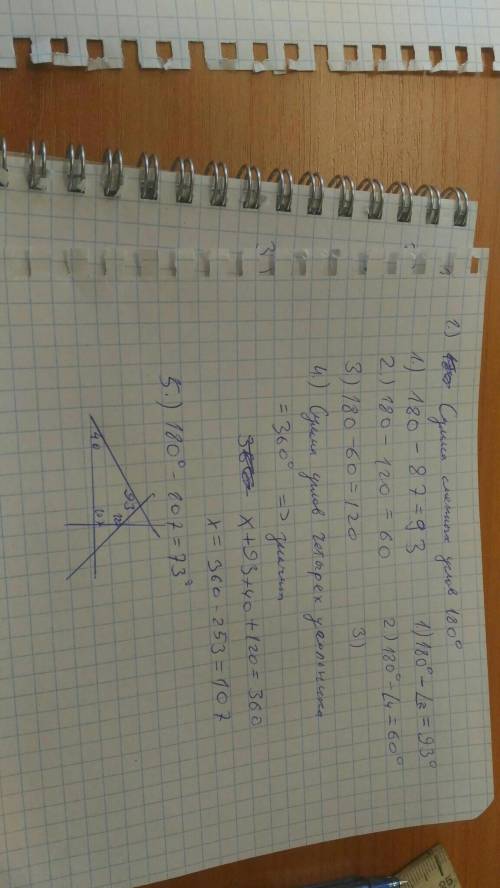 2.) Сумма смежных углов 180°
1.) 180 - 87 = 93
1) 180° - ∠2 = 93°
2.) 180 - 120 = 60
2) 180° - ∠4 = 60°
3) 180 - 60 = 120
3)
4.) Сумма углов четырех угольника
= 360° => значит
x + 93 + 40 + 120 = 360
x = 360 - 253 = 107
5.) 180° - 107 = 73°
40
93
107
3)